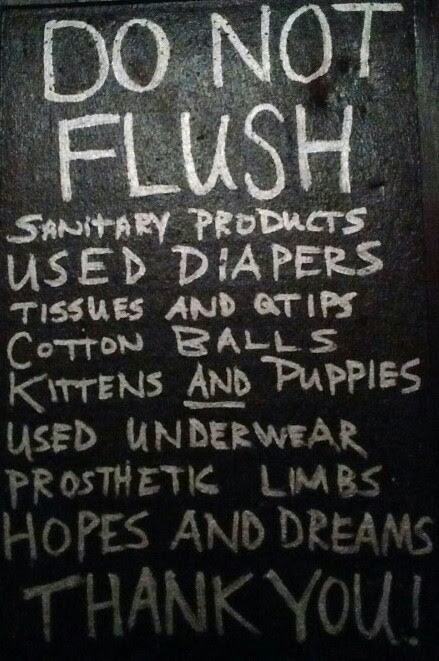 DO NOT
FLUSH
SANITARY PRODUCTS
USED DiAPERS
TISSUES AND QTIPS
COTTON BALLS
KITTENS AND PUPPIES
USED UNDERWEAR
PROSTHETIC LIMBS
HOPES AND DREAMS
THANK YOU!